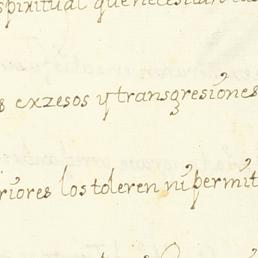 spiritual que necesitan
s exzesos y transgresiones
riores los toleren ni permit